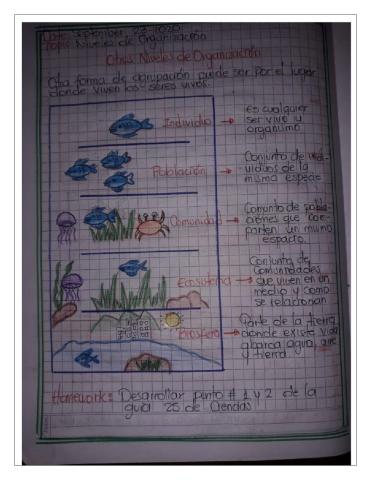 Date: September, 23-2020
Topic: Niveles de Organización
Otros Niveles de Organización
Otra forma de agrupación puede ser por el lugar
donde viven los seres vivos.
Individuo → Es cualquier
ser vivo u
organismo
Población → Conjunto de indi-
viduos de la
misma especie
Comunidad → Conjunto de pobla-
ciones que com-
parten un mismo
espacio.
Ecosistema → Conjunto de
Comunidades
que viven en un
medio y como
se relacionan
Biosfera → Parte de la tierra
donde existe vida
abarca agua, aire
y tierra.
Homework: Desarrollar punto # 1 y 2 de la
guia 25 de Ciencias